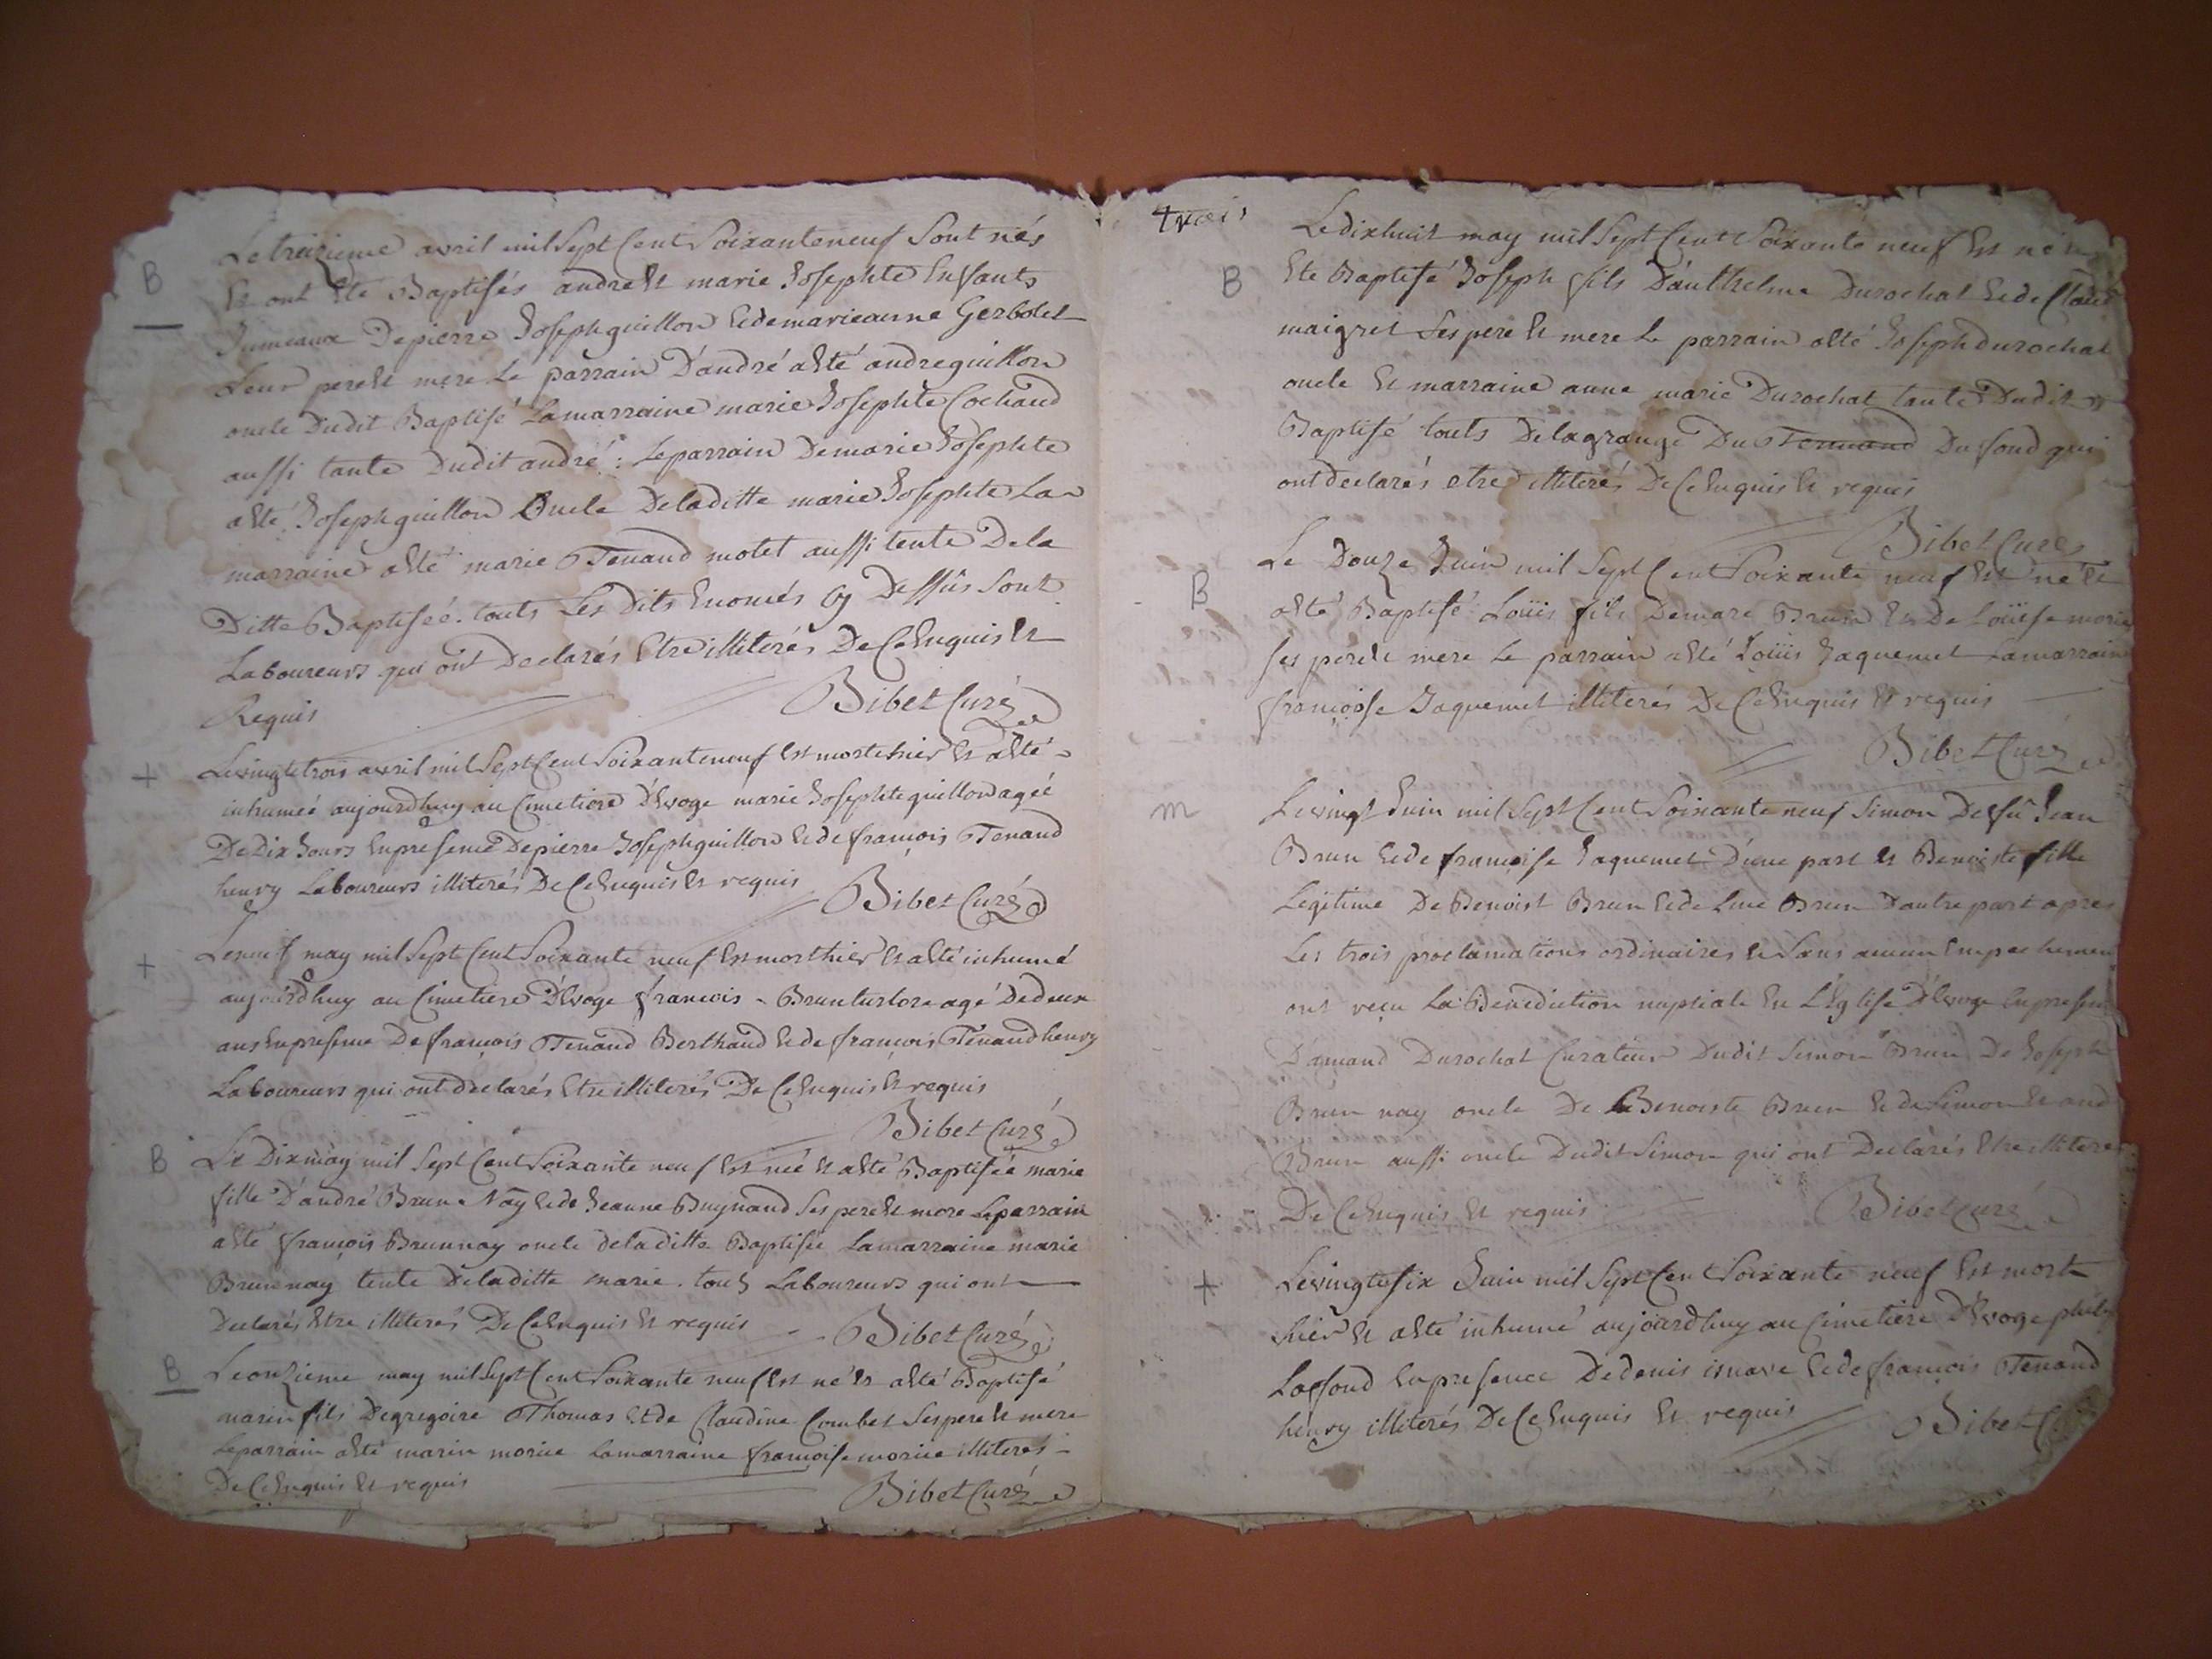 B
Le treizieme avril mil Sept Cent Soixante neuf Sont nés
Et ont Eté Baptisés andre Et marie Josephte Enfants
Jumeaux De pierre Joseph guillon Et de marie anne Gerbolet
Leur pere Et mere Le parrain D'andré a Eté andre guillon
oncle Dudit Baptisé La marraine marie Josephte Cochand
aussi tante Dudit andré : Le parrain De marie Josephte
a Eté Joseph guillon Oncle De la ditte marie Josephte La
marraine a Eté marie Tenand motet aussi tente De la
Ditte Baptiseé. touts Les Dits Enomés Cy Dessûs Sont
Laboureurs qui ont Declarés Etre illiterés De Ce Enquis Et
Requis Bibet Curé
+ Le vingt trois avril mil Sept Cent Soixante neuf Est morte hier Et a Eté
inhumeé aujourdhuy au Cimetiere D'Evoge marie Josephte guillon ageé
De Dix Jours En presence De pierre Joseph guillon Et de francois Tenand
henry Laboureurs illiterés De Ce Enquis Et requis Bibet Curé
+ Le neuf may mil Sept Cent Soixante neuf Est mort hier Et a Eté inhumé
aujourdhuy au Cimetiere D'Evoge francois Brun turlore agé De deux
ans En presence De francois Tenand Berthand Et de francois Tenand henry
Laboureurs qui ont declarés Etre illiterés De Ce Enquis Et requis
Bibet Curé
B Le Dix may mil Sept Cent Soixante neuf Est neé Et a Eté Baptiseé marie
fille D'andré Brun Nay Et de Jeanne Buynand Ses pere Et mere Le parrain
a Eté francois Brun nay oncle de la ditte Baptisée La marraine marie
Brun nay tente De la ditte marie. touts Laboureurs qui ont
Declarés Etre illiterés De Ce Enquis Et requis Bibet Curé
B Le onzieme may mil Sept Cent Soixante neuf Est né Et a Eté Baptisé
marin fils De gregoire Thomas Et de Claudine Combet Ses pere Et mere
Le parrain a Eté marin morice La marraine francoise morice illiterés
De Ce Enquis Et requis Bibet Curé
trois
Le dix huit may mil Sept Cent Soixante neuf Est né
B Eté Baptisé Joseph fils D'anthelme Durochat Et de
maigret Ses pere Et mere Le parrain a Eté Joseph durochat
oncle Et marraine anne marie Durochat tante Dudit
Baptisé touts De la grange Du Tennand Du fond qui
ont declarés etre illiterés De Ce Enquis Et requis
Bibet Curé
B Le Douze Juin mil Sept Cent Soixante neuf Est né Et
a Eté Baptisé Loüis fils De marc Brun Et De Loüise
Ses pere Et mere Le parrain a Eté Loüis Jaquemet La marraine
francoise Jaquemet illiterés De Ce Enquis Et requis
Bibet Curé
m Le vingt Juin mil Sept Cent Soixante neuf Simon De fû Jean
Brun Et de francoise Jaquemet D'une part Et Benoiste fille
Legitime De Benoist Brun Et de Brun D'autre part apres
Les trois proclamations ordinaires Et Sans aucun Empechement
ont reçu La Benediction nuptiale En L'Eglise D'Evoge En presence
D'amand Durochat Curateur Dudit Simon Brun De Joseph
Brun nay oncle De Benoiste Brun Et de Simon
Brun aussi oncle Dudit Simon qui ont Declarés Etre illiterés
De Ce Enquis Et requis Bibet Curé
+ Le vingt Six Juin mil Sept Cent Soixante neuf Est mort
hier Et a Eté inhumé aujourdhuy au Cimetiere D'Evoge
Lafond En presence De denis Et de francois Tenand
henry illiterés De Ce Enquis Et requis Bibet